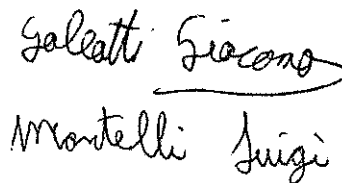 Galeatti Giacomo
Martelli Luigi